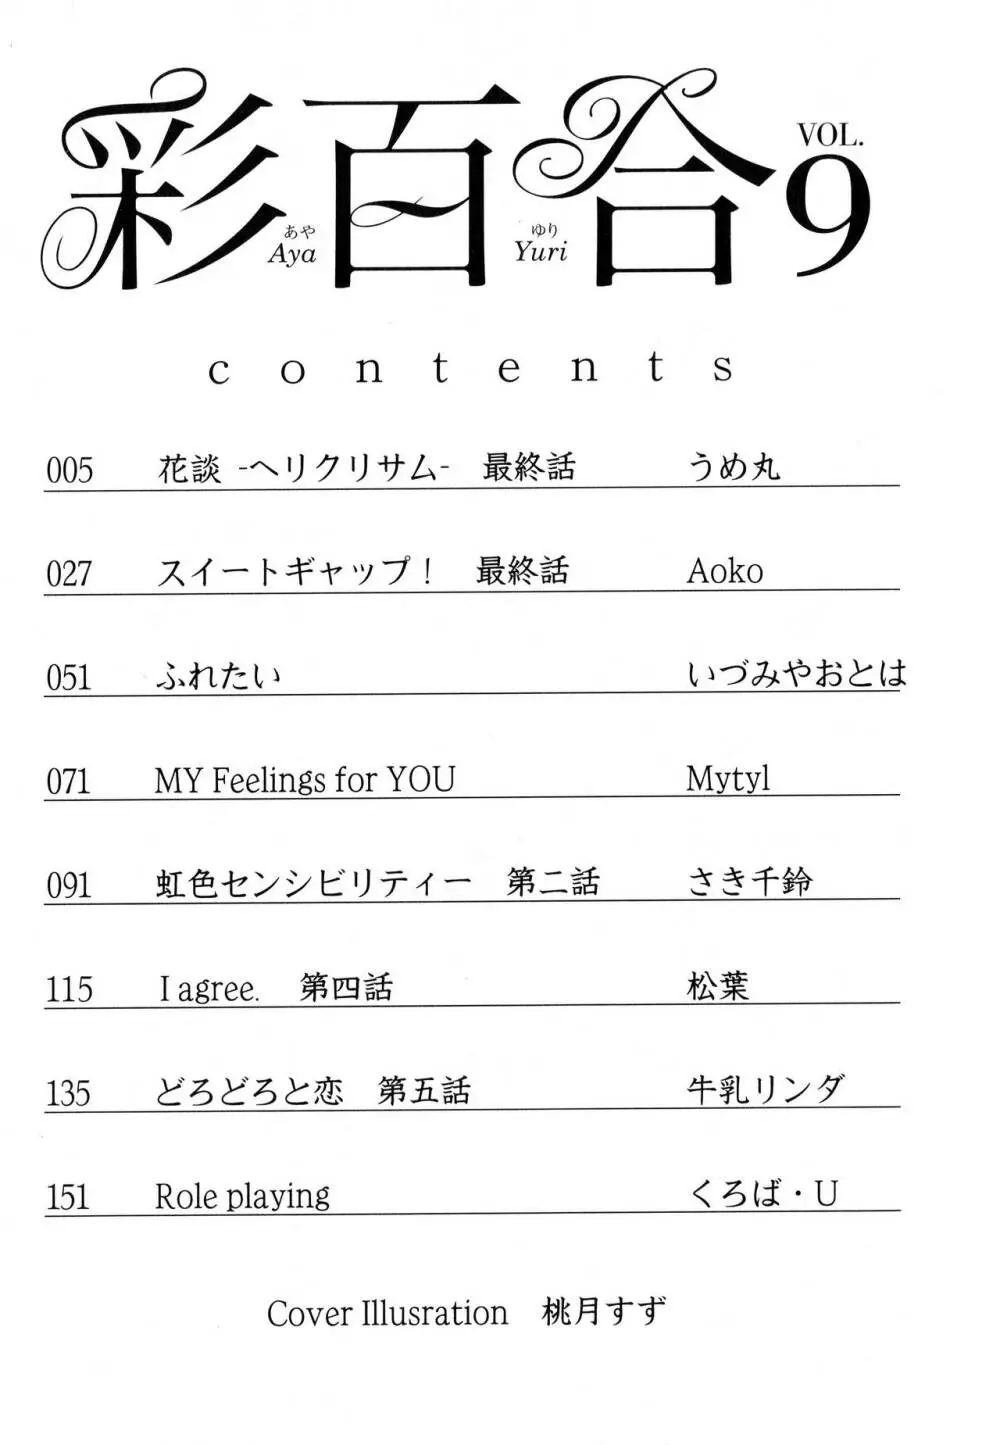 彩百合 VOL.9
あや ゆり
Aya Yuri
contents
005 花談 -ヘリクリサム- 最終話 うめ丸
027 スイートギャップ！ 最終話 Aoko
051 ふれたい いづみやおとは
071 MY Feelings for YOU Mytyl
091 虹色センシビリティー 第二話 さき千鈴
115 I agree. 第四話 松葉
135 どろどろと恋 第五話 牛乳リンダ
151 Role playing くろば・U
Cover Illusration 桃月すず